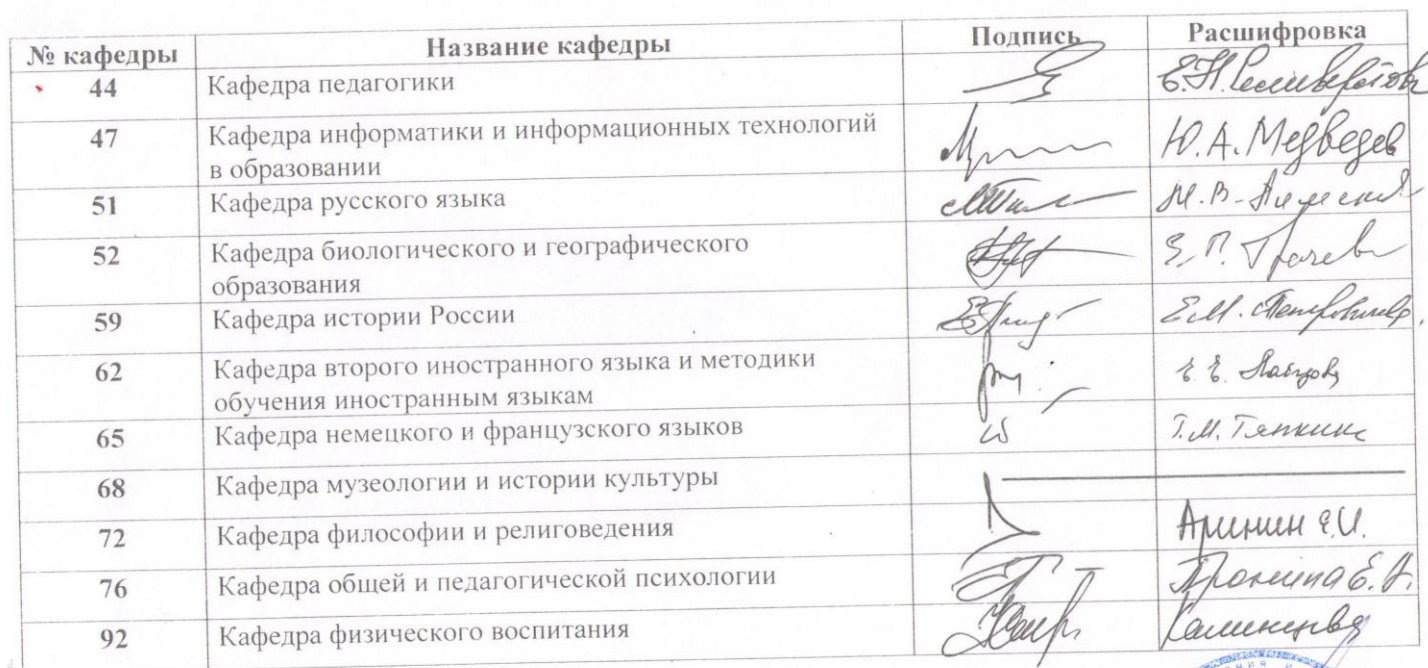 № кафедры Название кафедры Подпись Расшифровка
44 Кафедра педагогики Е.Н. Селиверстова
47 Кафедра информатики и информационных технологий
в образовании Ю.А. Медведев
51 Кафедра русского языка М.В.
52 Кафедра биологического и географического
образования Е.П. Грачева
59 Кафедра истории России Е.М. Петровичева
62 Кафедра второго иностранного языка и методики
обучения иностранным языкам Е.Е.
65 Кафедра немецкого и французского языков Т.М. Тяпкина
68 Кафедра музеологии и истории культуры
72 Кафедра философии и религоведения Аринин Е.И.
76 Кафедра общей и педагогической психологии Пронина Е.В.
92 Кафедра физического воспитания